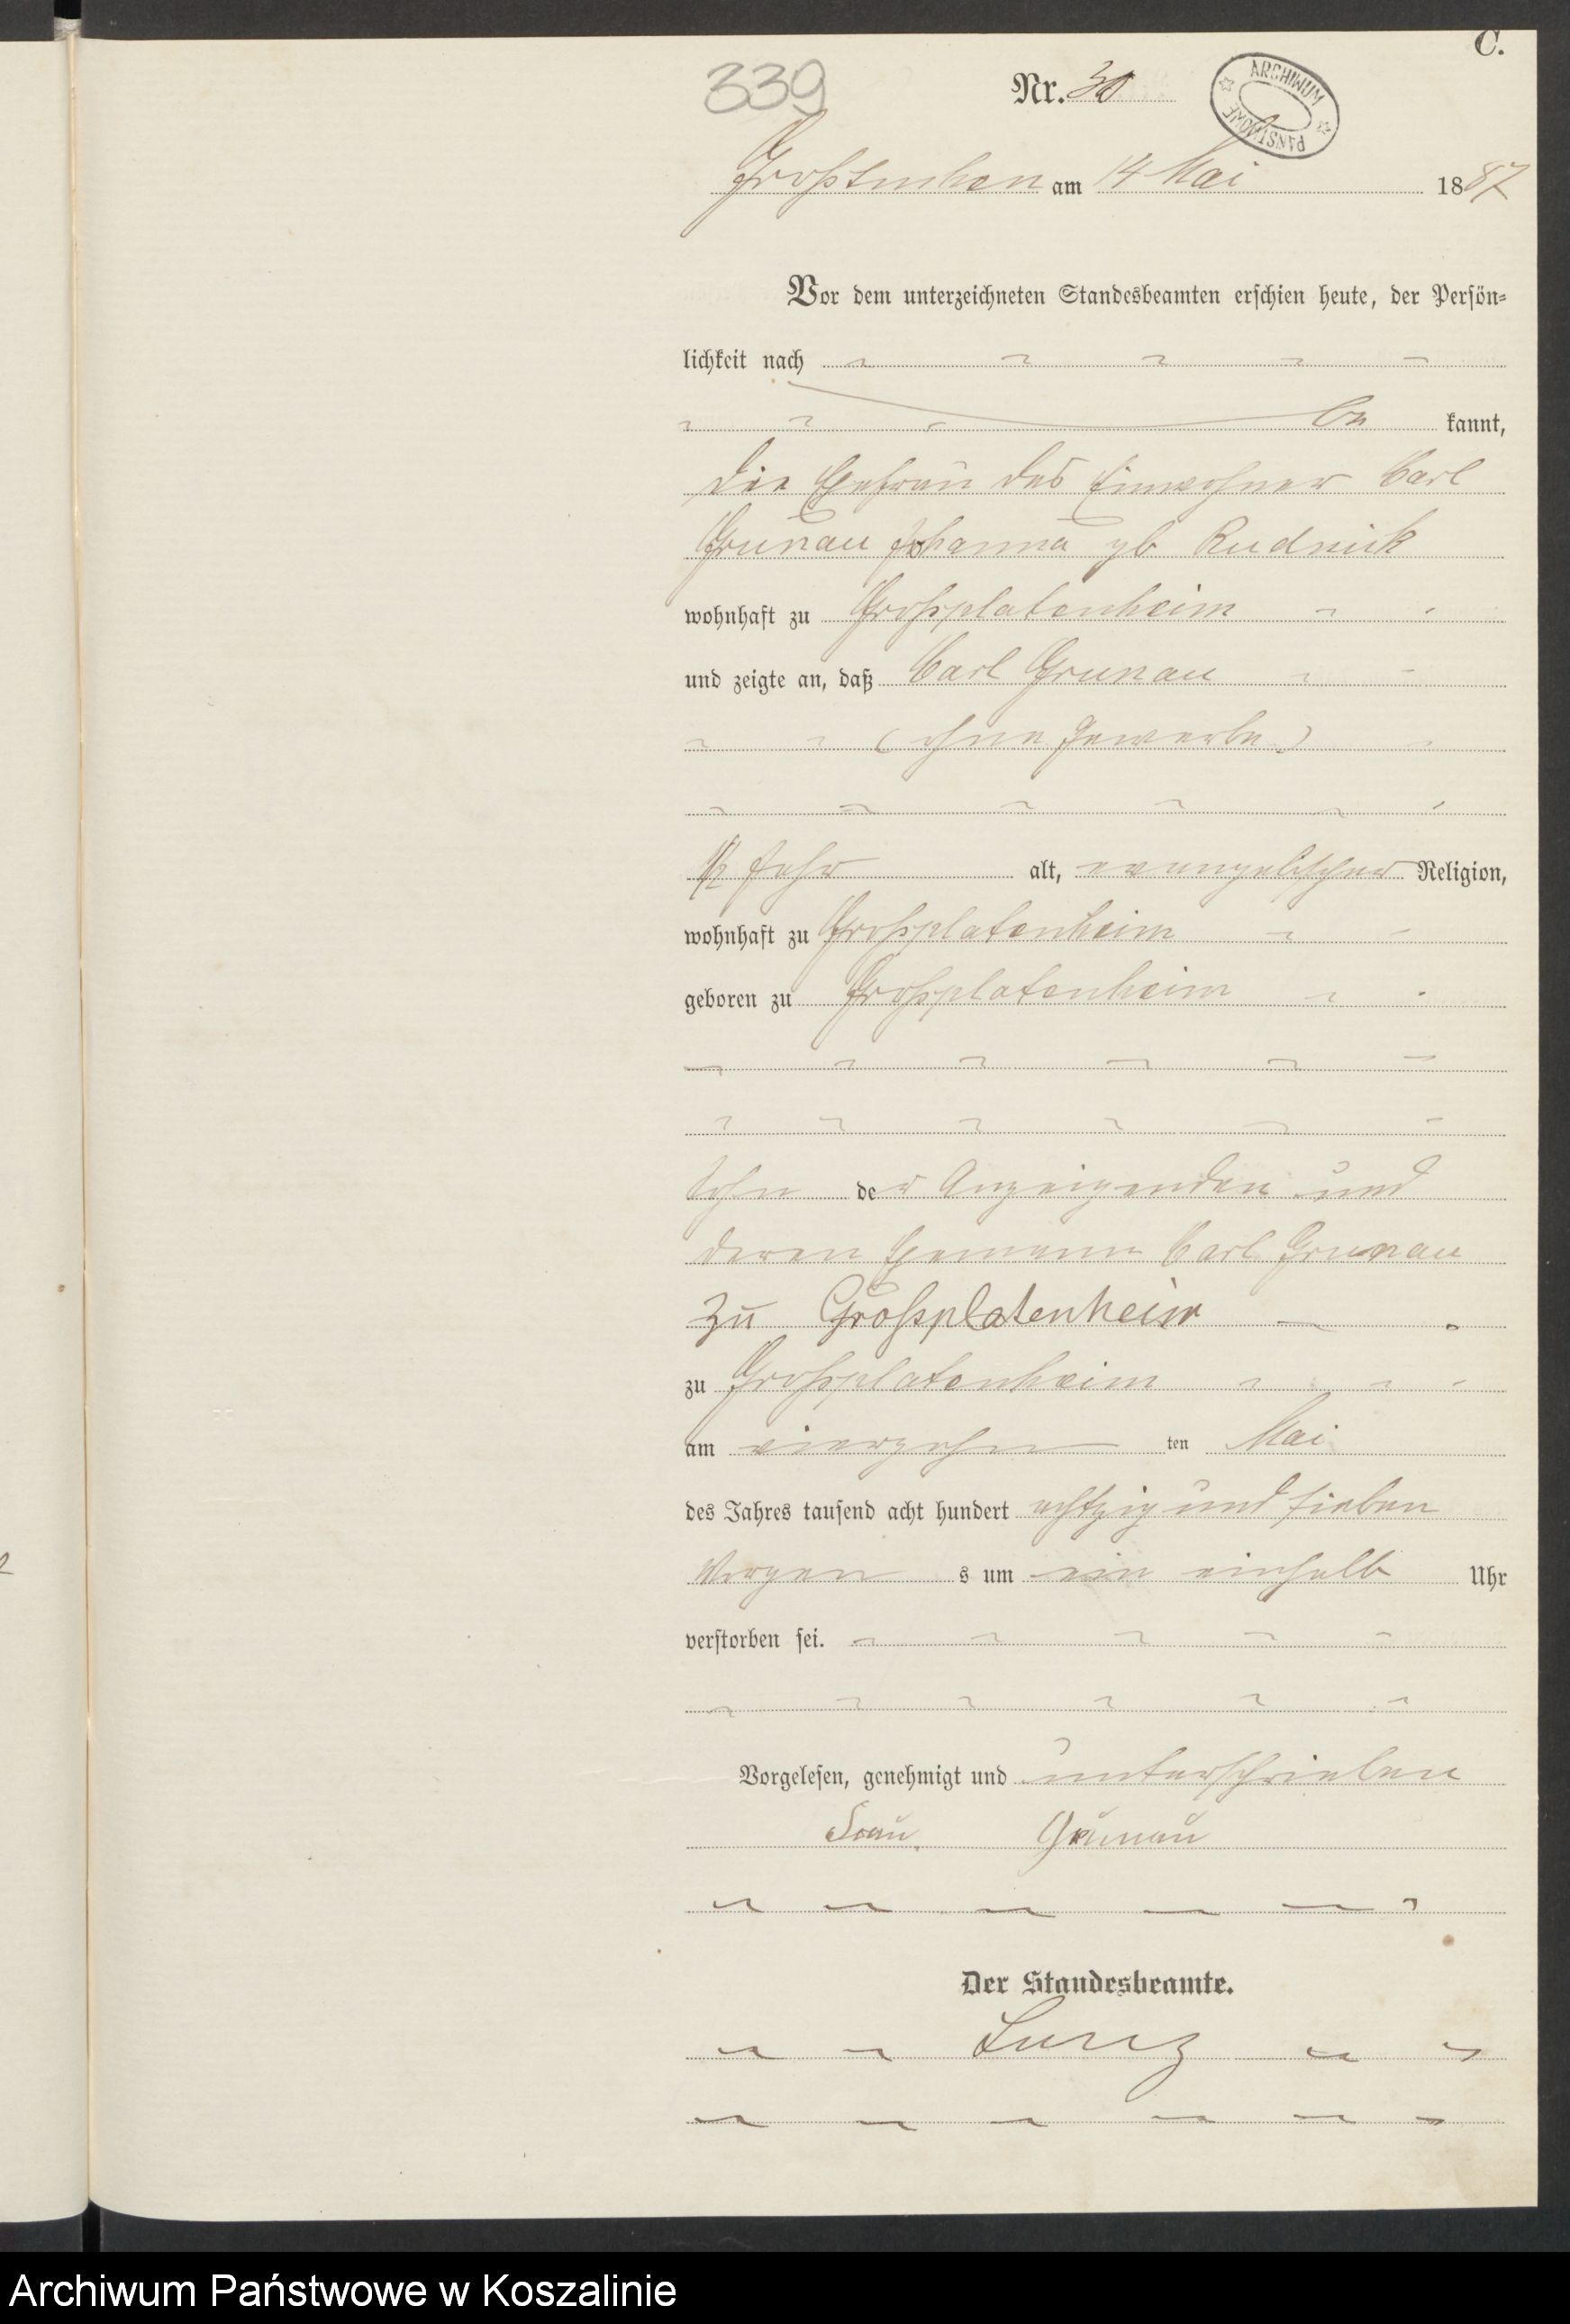 C.
339
Nr. 30
ARCHIWUM PAŃSTWOWE
Großtuchen am 14 Mai 1887
Vor dem unterzeichneten Standesbeamten erschien heute, der Persön-
lichkeit nach
be kannt,
die Ehefrau des Einwohner Carl
Grunau Johanna gb Rudnick
wohnhaft zu Großplatenheim
und zeigte an, daß Carl Grunau
(ohne Gewerbe)
1/2 Jahr alt, evangelischer Religion,
wohnhaft zu Großplatenheim
geboren zu Großplatenheim
Sohn der Anzeigenden und
deren Ehemann Carl Grunau
zu Großplatenheim
zu Großplatenheim
am vierzehn ten Mai
des Jahres tausend acht hundert achtzig und sieben
Morgen s um ein einhalb Uhr
verstorben sei.
Vorgelesen, genehmigt und unterschrieben
Frau Grunau
Der Standesbeamte.
Archiwum Państwowe w Koszalinie